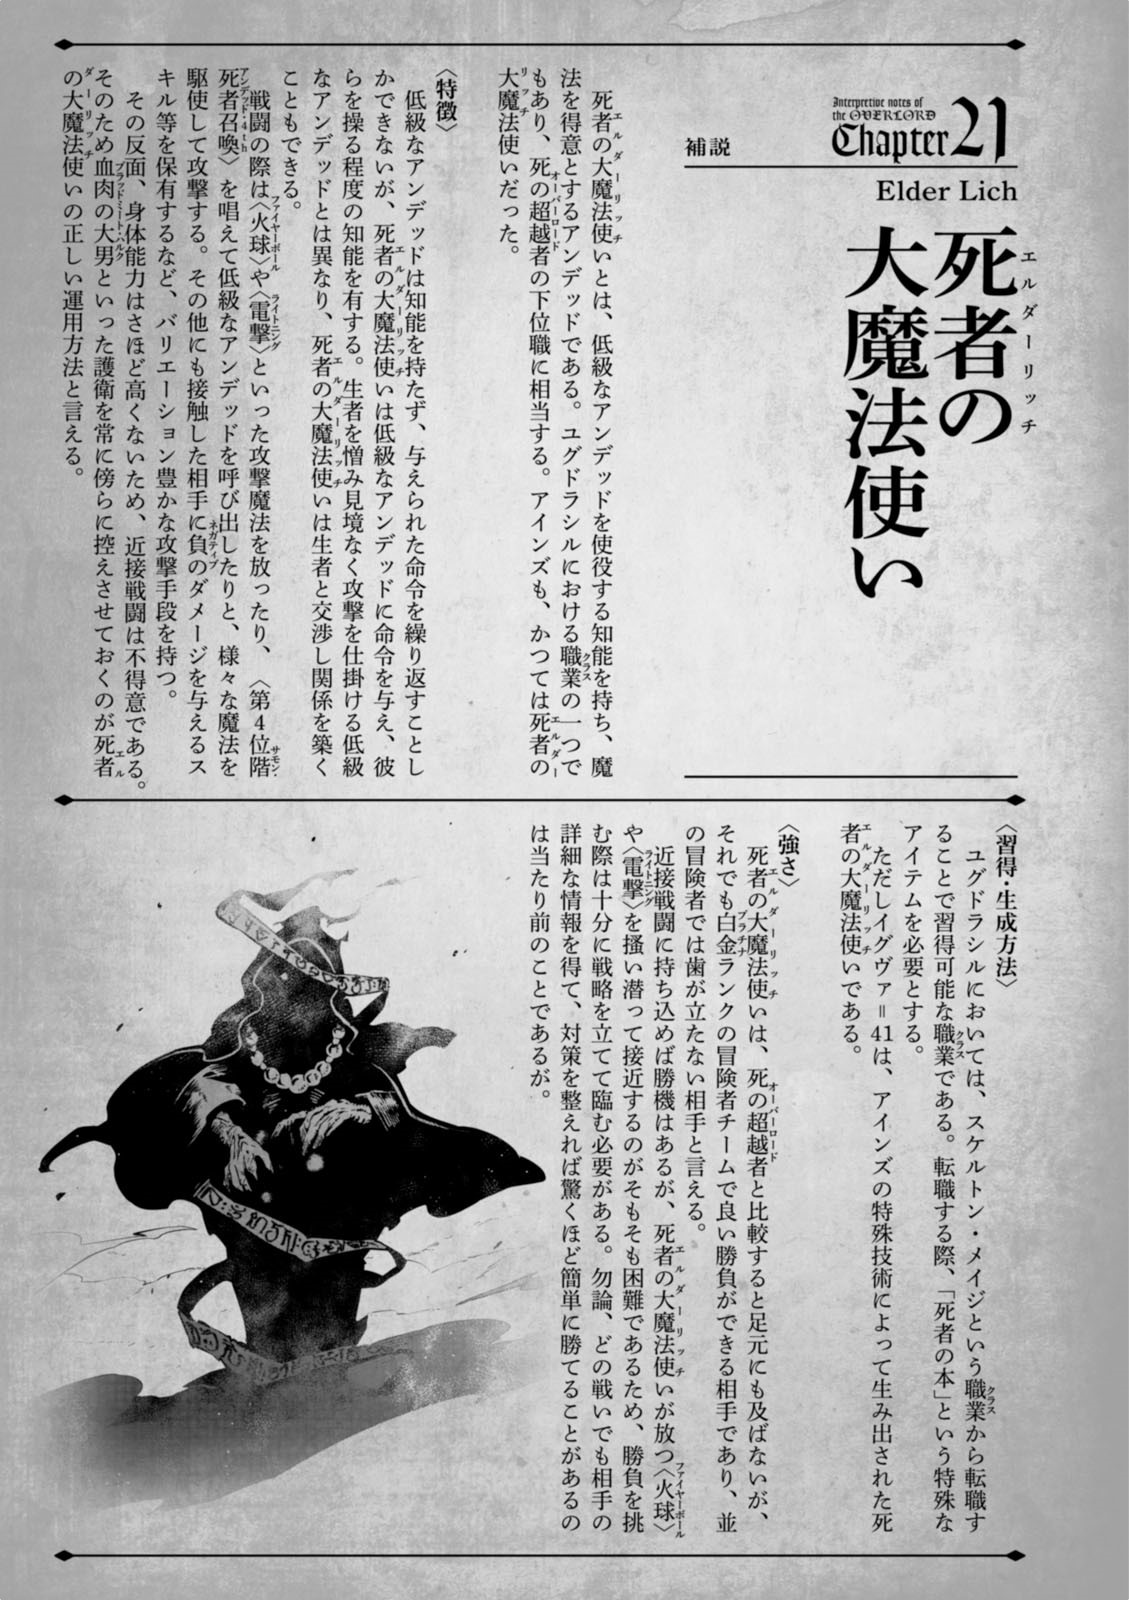 Interpretive notes of
the OVERLORD
Chapter 21
補説
Elder Lich
死者の
大魔法使い
エルダーリッチ
死者の大魔法使いとは、低級なアンデッドを使役する知能を持ち、魔
法を得意とするアンデッドである。ユグドラシルにおける職業の一つで
もあり、死の超越者の下位職に相当する。アインズも、かつては死者の
大魔法使いだった。
〈特徴〉
低級なアンデッドは知能を持たず、与えられた命令を繰り返すことし
かできないが、死者の大魔法使いは低級なアンデッドに命令を与え、彼
らを操る程度の知能を有する。生者を憎み見境なく攻撃を仕掛ける低級
なアンデッドとは異なり、死者の大魔法使いは生者と交渉し関係を築く
こともできる。
戦闘の際は〈火球〉や〈電撃〉といった攻撃魔法を放ったり、〈第4位階
死者召喚〉を唱えて低級なアンデッドを呼び出したりと、様々な魔法を
駆使して攻撃する。その他にも接触した相手に負のダメージを与えるス
キル等を保有するなど、バリエーション豊かな攻撃手段を持つ。
その反面、身体能力はさほど高くないため、近接戦闘は不得意である。
そのため血肉の大男といった護衛を常に傍らに控えさせておくのが死者
の大魔法使いの正しい運用方法と言える。
〈習得・生成方法〉
ユグドラシルにおいては、スケルトン・メイジという職業から転職す
ることで習得可能な職業である。転職する際、「死者の本」という特殊な
アイテムを必要とする。
ただしイグヴァ＝41は、アインズの特殊技術によって生み出された死
者の大魔法使いである。
〈強さ〉
死者の大魔法使いは、死の超越者と比較すると足元にも及ばないが、
それでも白金ランクの冒険者チームで良い勝負ができる相手であり、並
の冒険者では歯が立たない相手と言える。
近接戦闘に持ち込めば勝機はあるが、死者の大魔法使いが放つ〈火球〉
や〈電撃〉を掻い潜って接近するのがそもそも困難であるため、勝負を挑
む際は十分に戦略を立てて臨む必要がある。勿論、どの戦いでも相手の
詳細な情報を得て、対策を整えれば驚くほど簡単に勝てることがあるの
は当たり前のことであるが。